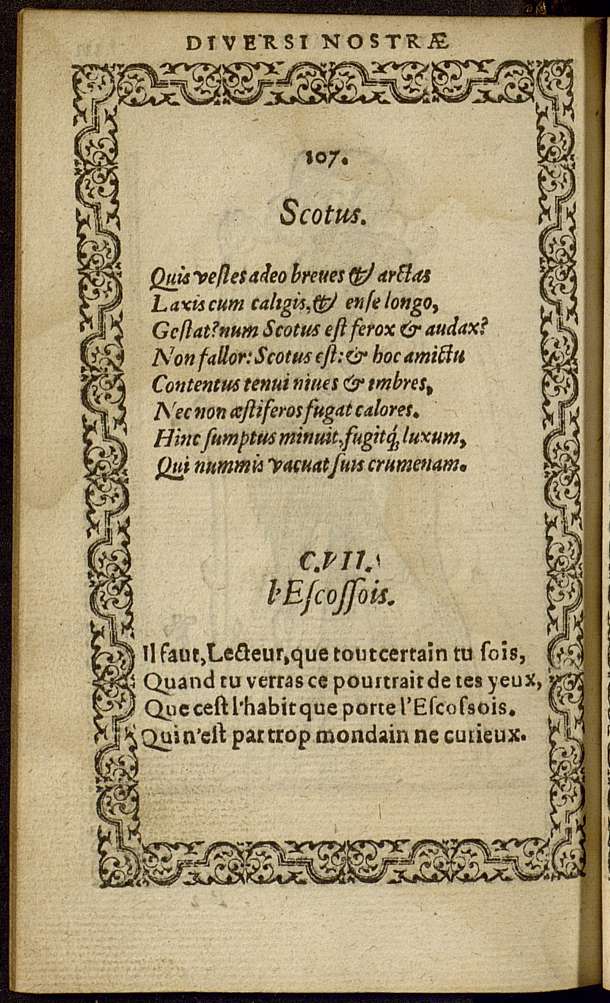 DIVERSI NOSTRÆ
107.
Scotus.
Quis vestes adeo breues & arctas
Laxis cum caligis, & ense longo,
Gestat? num Scotus est ferox & audax?
Non fallor: Scotus est: & hoc amictu
Contentus tenui niues & imbres,
Nec non æstiferos fugat calores.
Hinc sumptus minuit, fugitq́; luxum,
Qui nummis vacuat suis crumenam.
C.VII.
l'Escossois.
Il faut, Lecteur, que tout certain tu sois,
Quand tu verras ce pourtrait de tes yeux,
Que cest l'habit que porte l'Escossois.
Qui n'est par trop mondain ne curieux.